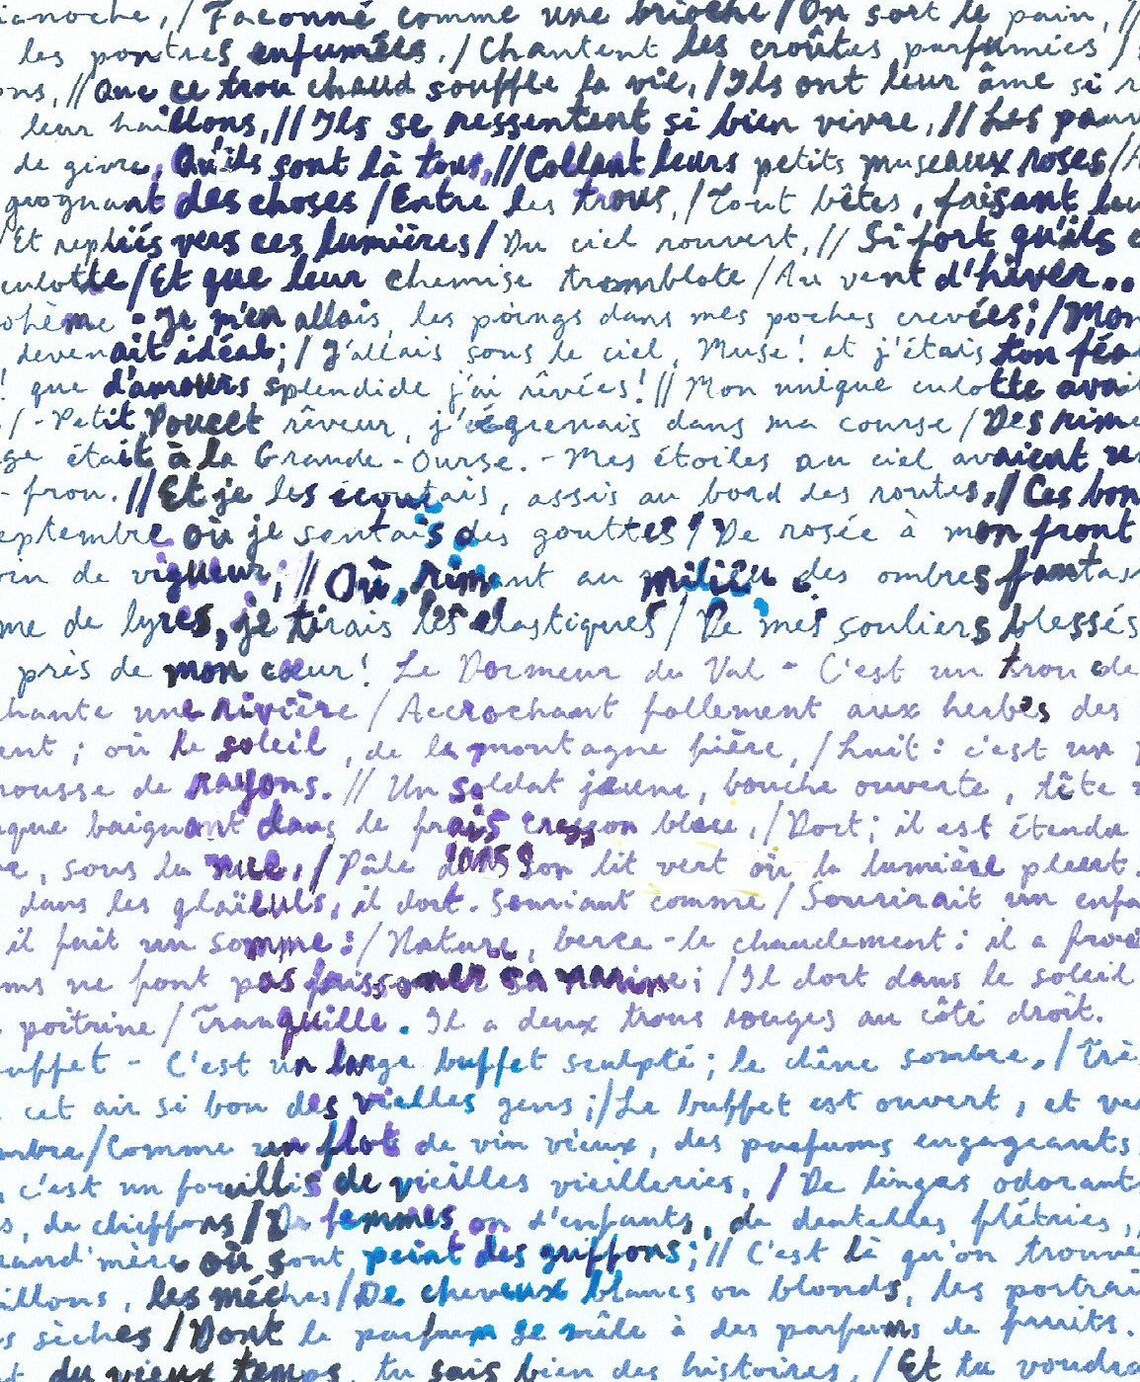 ianoche, / Façonné comme une brioche / On sort le pain, //
les poutres enfumées, / Chantent les croûtes parfumées /
ons, // Que ce trou chaud souffle la vie, / Ils ont leur âme si r
leur haillons, // Ils se ressentent si bien vivre, // Les pauv
de givre, Qu'ils sont là tous, // Collant leurs petits museaux roses /
grognant des choses / Entre les trous, / Tout bêtes, faisant leu
Et repliés vers ces lumières / Du ciel rouvert, // Si fort qu'ils
culotte / Et que leur chemise tremblote / Au vent d'hiver..
ohème - Je m'en allais, les poings dans mes poches crevées; / Mon
devenait idéal; / J'allais sous le ciel, Muse! et j'étais ton féa
! que d'amours splendide j'ai rêvées! // Mon unique culotte avai
/ - Petit Poucet rêveur, j'égrenais dans ma course / Des rime
ge était à la Grande-Ourse. - Mes étoiles au ciel avaient un
- frou. // Et je les écoutais, assis au bord des routes, / Ces bon
eptembre où je sentais des gouttes / De rosée à mon front
in de vigueur; // Où, rimant au milieu des ombres fantas
me de lyres, je tirais les élastiques / De mes souliers blessés
près de mon cœur! Le Dormeur du Val - C'est un trou de
hante une rivière / Accrochant follement aux herbes des
ent; où le soleil, de la montagne fière, / Luit: c'est un
ousse de rayons. // Un soldat jeune, bouche ouverte, tête
que baignant dans le frais cresson bleu, / Dort; il est étendu
e, sous la nue, / Pâle dans son lit vert où la lumière pleut.
dans les glaïeuls, il dort. Souriant comme / Sourirait un enfa
il fait un somme: / Nature, berce-le chaudement: il a froi
ms ne font pas frissonner sa narine; / Il dort dans le soleil
poitrine / Tranquille. Il a deux trous rouges au côté droit.
uffet - C'est un large buffet sculpté; le chêne sombre, / Trè
cet air si bon des vieilles gens; / Le buffet est ouvert, et ve
mbre / Comme un flot de vin vieux, des parfums engageants
, c'est un fouillis de vieilles vieilleries, / De linges odorant
s, de chiffons / De femmes ou d'enfants, de dentelles flétries,
rand'mère où sont peint des griffons; // C'est là qu'on trouve
illons, les mèches / De cheveux blancs ou blonds, les portrai
s sèches / Dont le parfum se mêle à des parfums de fruits.
du vieux temps, tu sais bien des histoires, / Et tu voudra